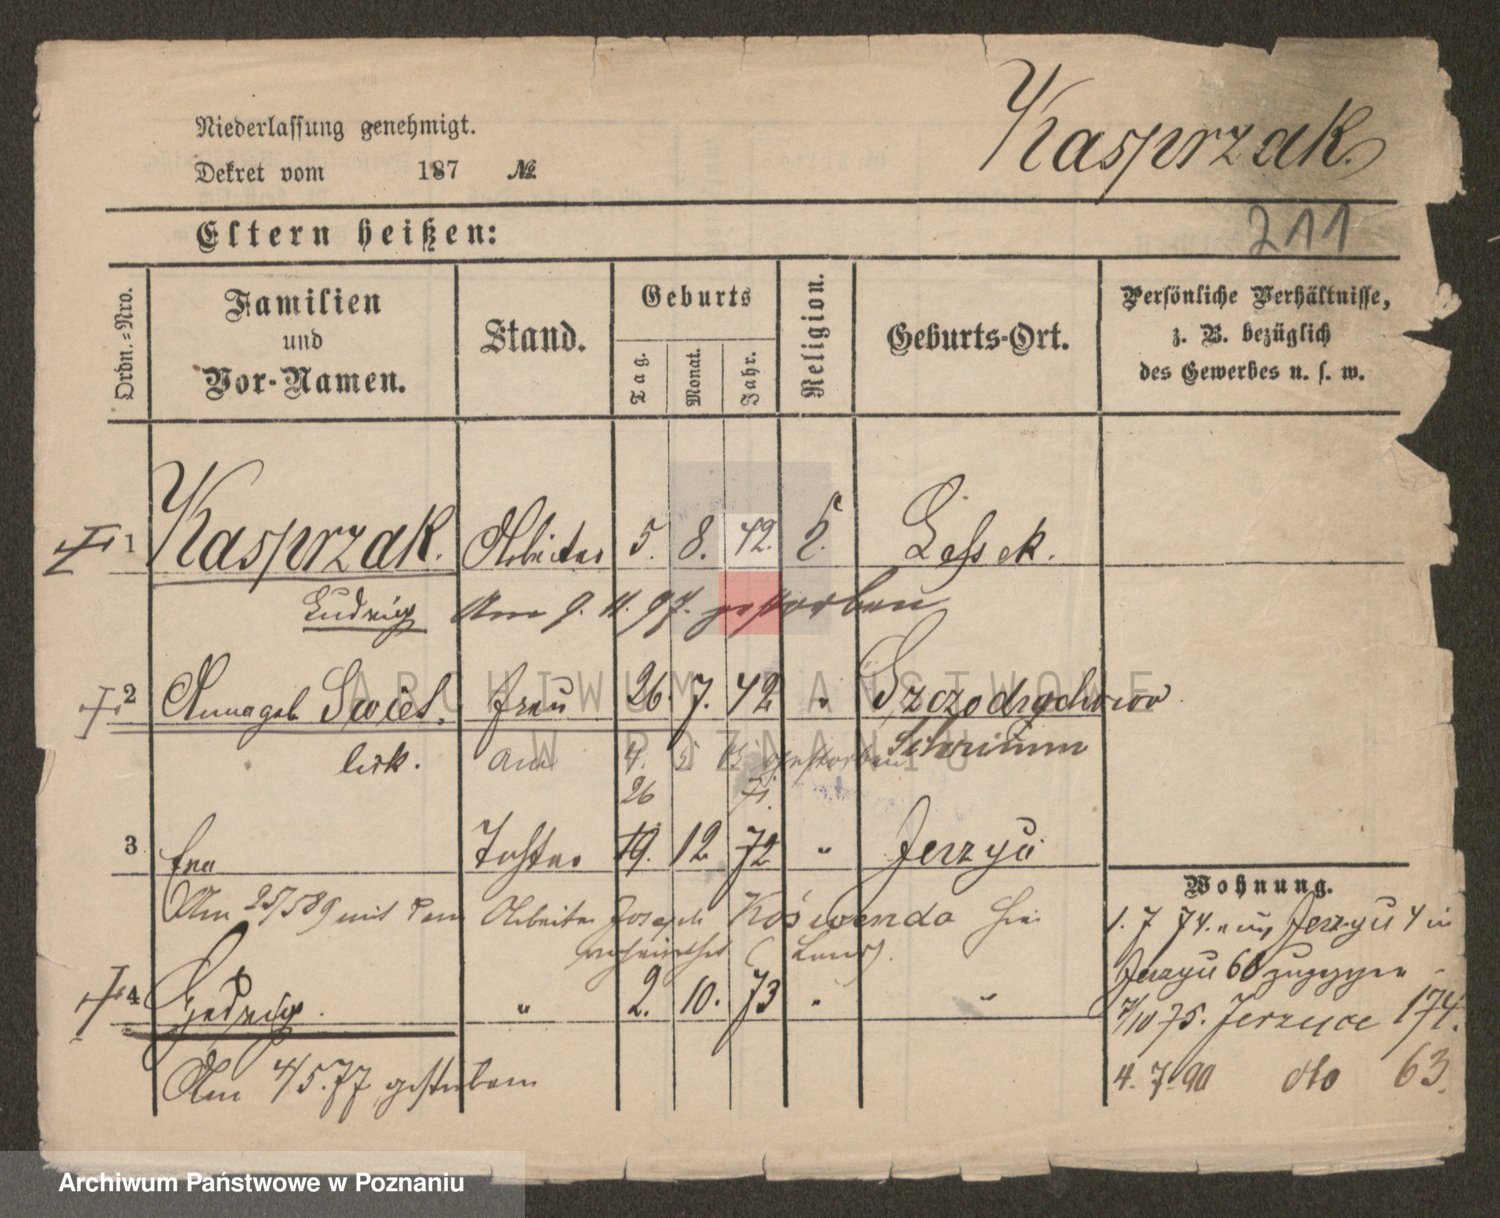 Kasprzak.
Niederlassung genehmigt.
Dekret vom 187 №
211
Eltern heißen:
Ordn.-Nro.
Familien
und
Vor-Namen.
Stand.
Geburts
Tag.
Monat.
Jahr.
Religion.
Geburts-Ort.
Persönliche Verhältnisse,
z. B. bezüglich
des Gewerbes u. s. w.
1 Kasprzak. Arbeiter 5. 8. 42. Lassek.
Ludwig Am 9. 11. 97. gestorben
2 Anna geb Swiet. Frau 26. 7. 42 " Szczodrzchowo
lick. Am 4. 5. gestorben
26 71.
3 Eva Tochter 19. 12 72 " Jerzyce
Am 25/5 89 mit dem Arbeiter Joseph hier
verheirathet
Wohnung.
1. 7 74. aus Jerzyce 4 in
Jerzyce 68 gezogen
4 Hedwig. " 2. 10. 73 " "
7/10 75. Jerzyce 174.
Am 4/5. 77 gestorben
4. 7. 90 dto 63.
ARCHIWUM PAŃSTWOWE
W POZNANIU
Archiwum Państwowe w Poznaniu